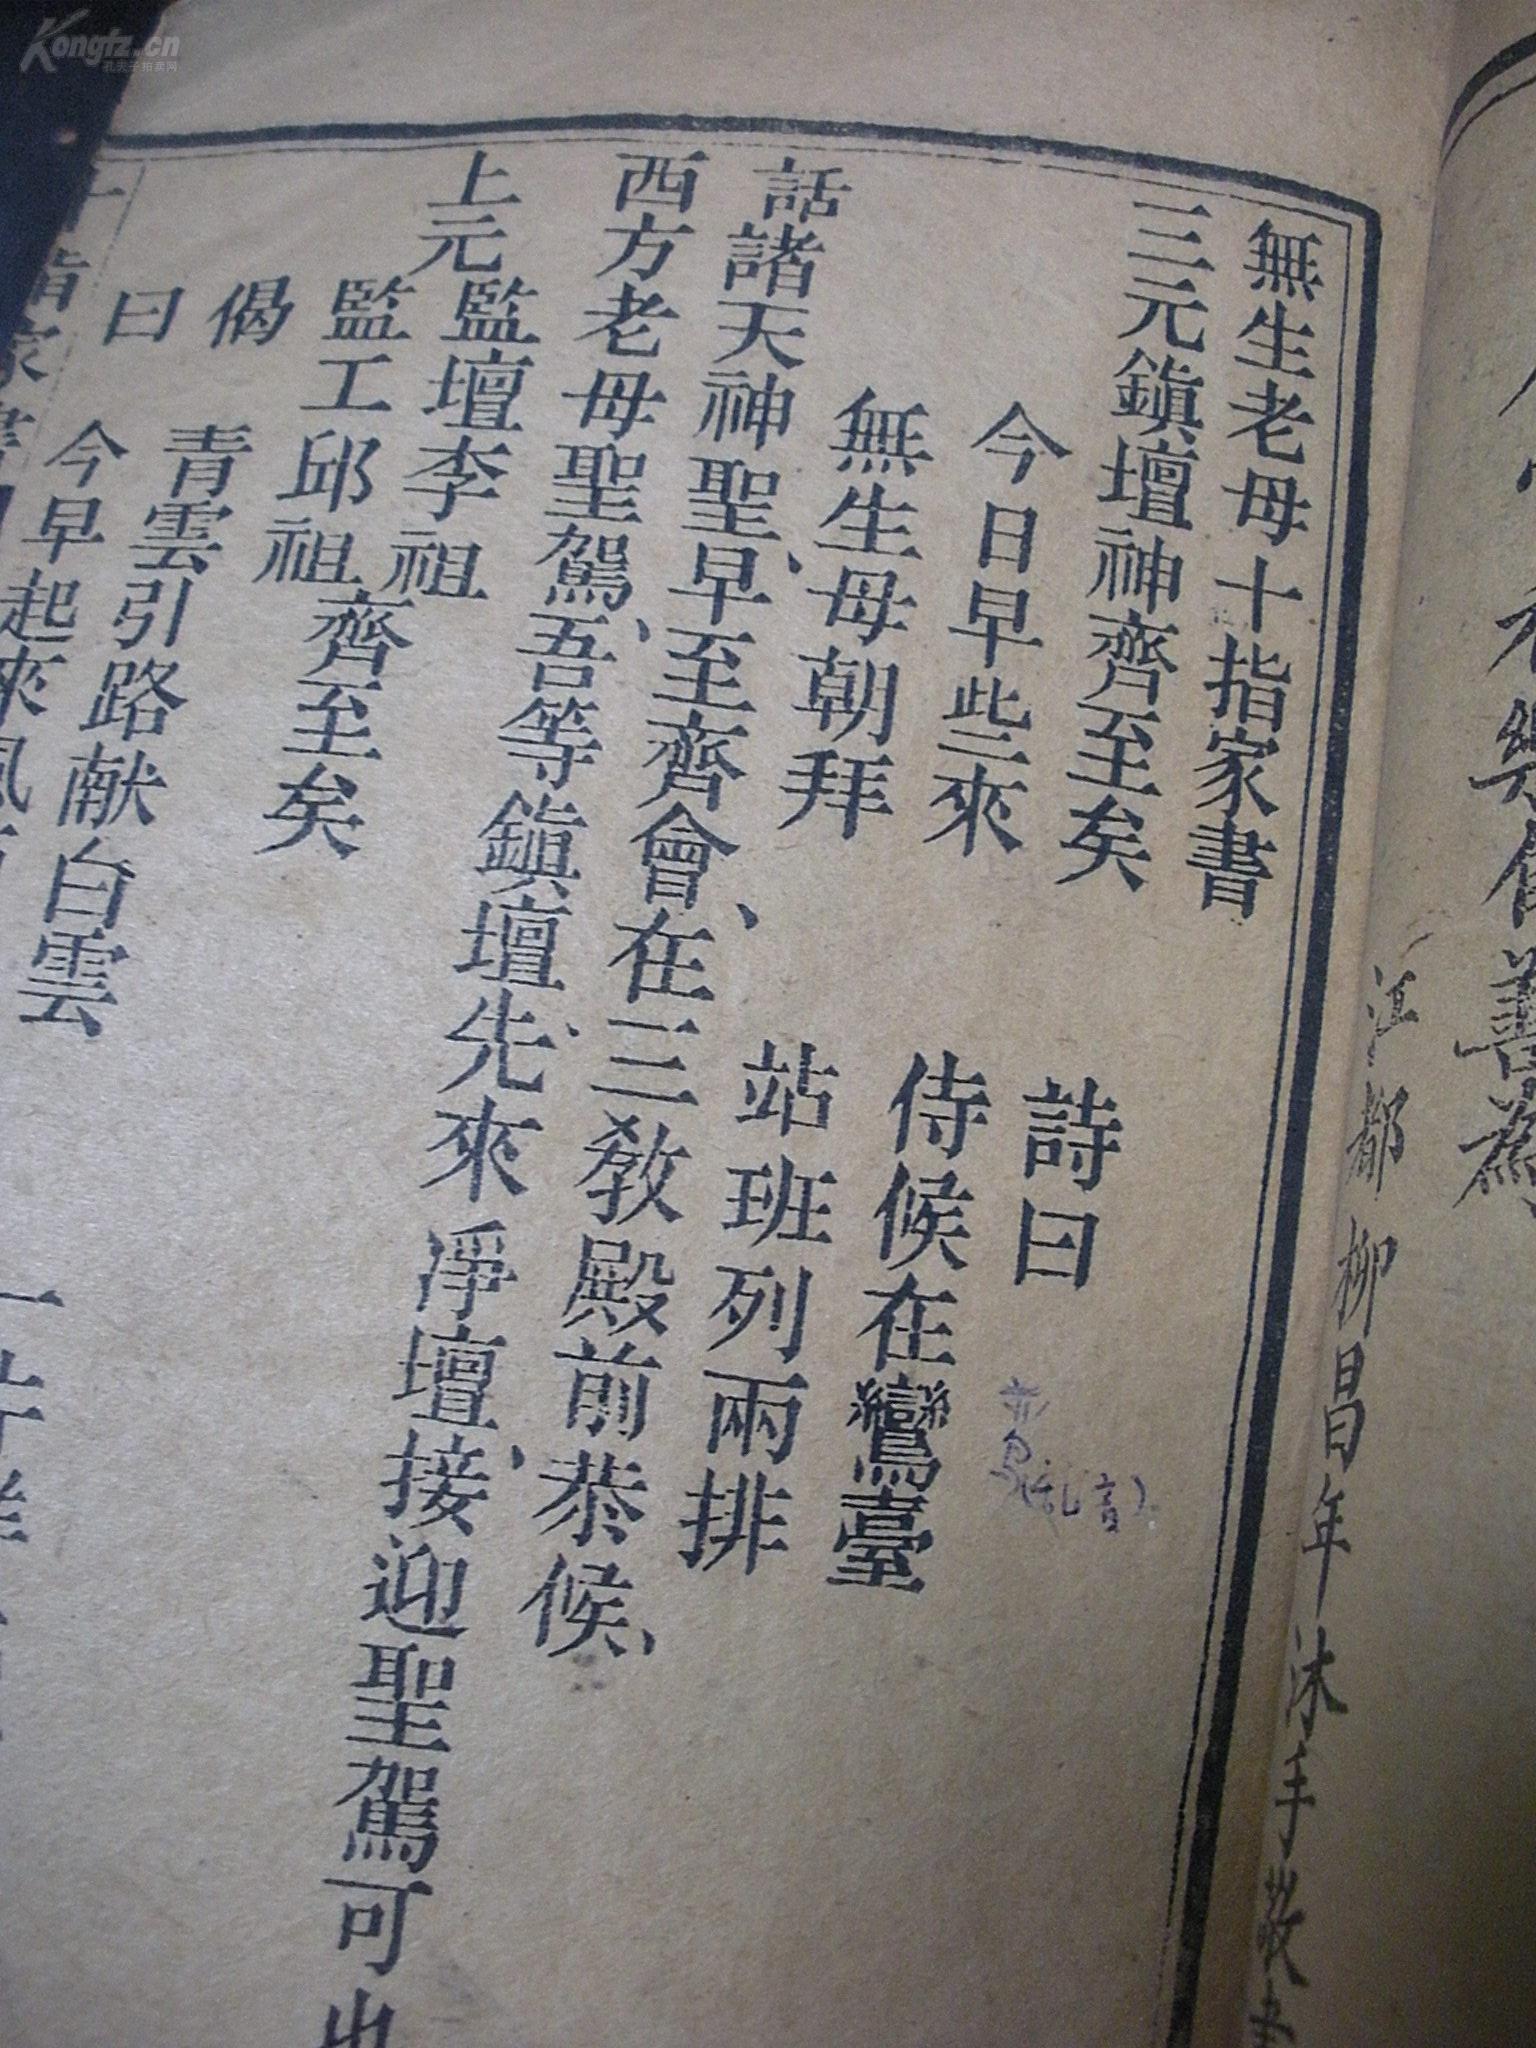 無生老母十指家書
三元鎮壇神齊至矣 詩曰
今日早些來 侍候在鸞臺
無生母朝拜 站班列兩排
話諸天神聖、早至齊會、在三教殿前恭候、
西方老母聖駕、吾等鎮壇、先來淨壇、接迎聖駕可也
上元監壇李祖
監工邱祖齊至矣
偈 青雲引路献白雲
曰 今早起來風
江都柳昌年沐手敬
善為
Kongfz.cn
孔夫子拍卖网